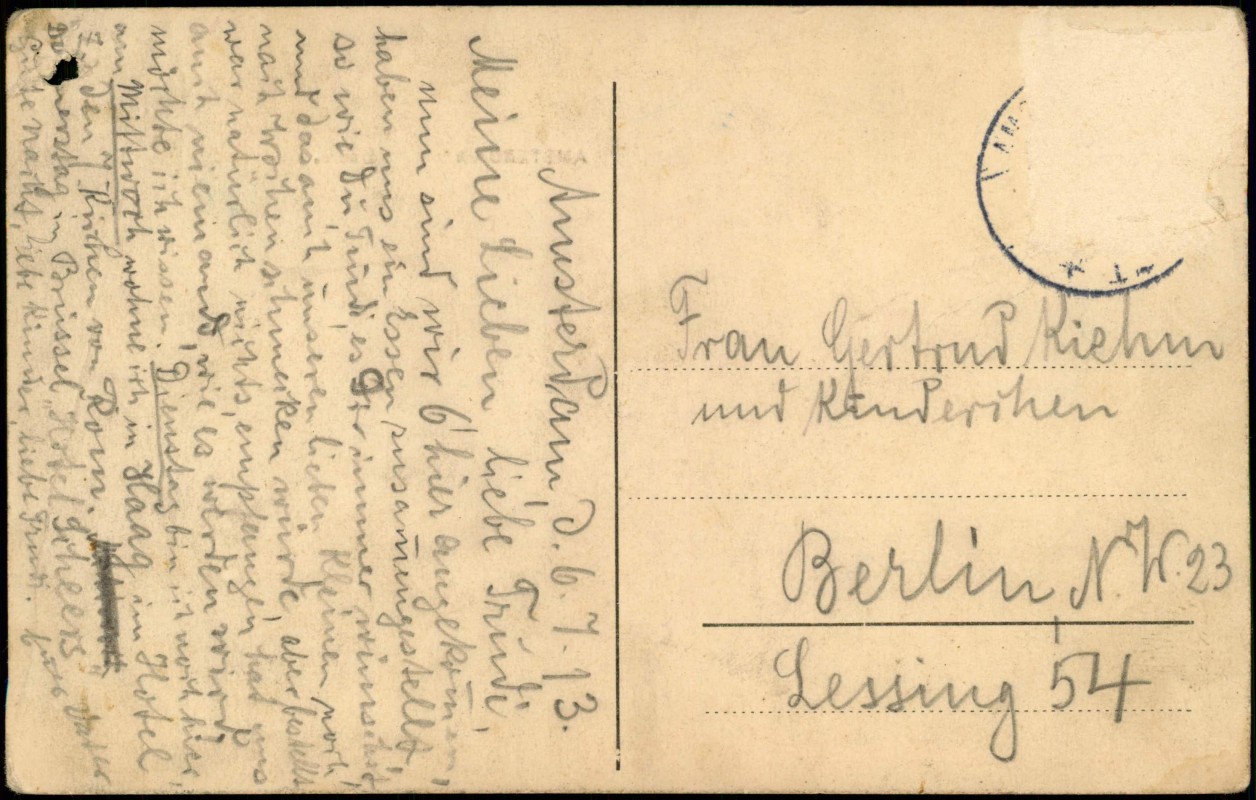 Amsterdam, d. 6. 7. 13.
Meine Lieben, liebe Trudi,
nun sind wir 6 hier angekom̄en,
haben uns ein Essen zusam̄engestellt,
so wie Du, Trudi, es Dir immer wünschst,
und das auch unseren lieben Kleinen noch
nach Wochen schmecken würde, aber bestellt
war natürlich nichts, empfangen hat uns
auch niemand, wie es werden wird
möchte ich wissen. Dienstag bin ich noch hier,
am Mittwoch wohne ich in Haag im Hotel
zu den 7 Kirchen von Rom.
Donnerstag in Brüssel „Hotel Scheers"
Gute Nacht, liebe Kinder, liebe Trudi. Euer Vater
AM
T
Frau Gertrud Riehm
und Kinderchen
Berlin, N.W. 23
Lessing 54